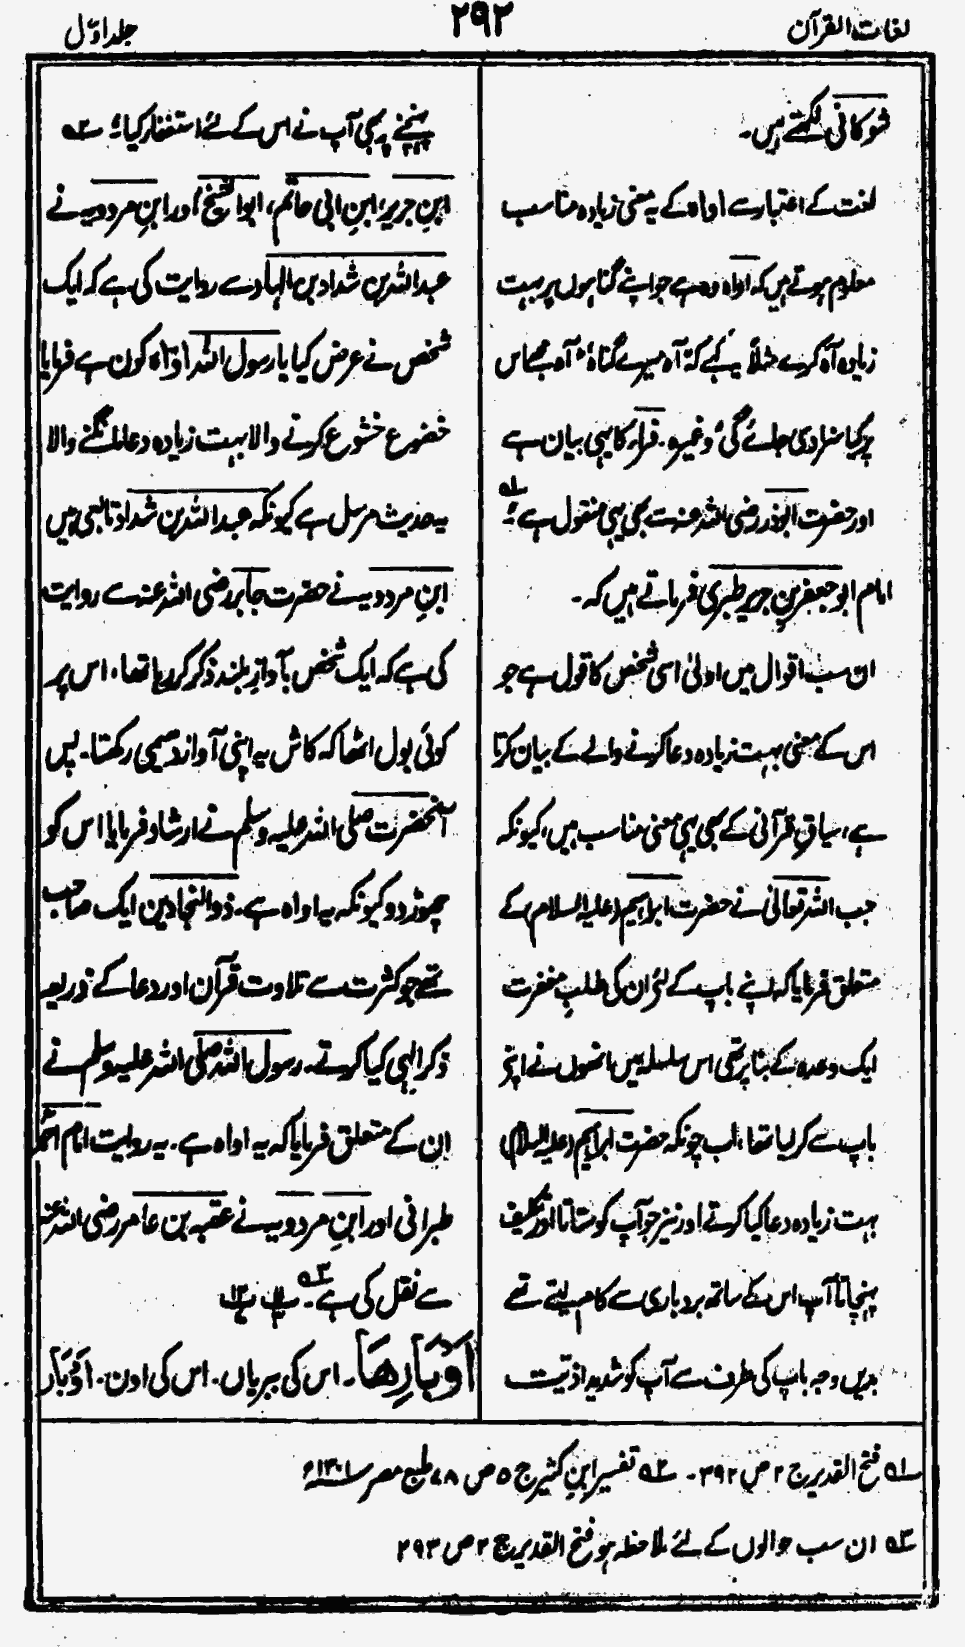 لغات القرآن
۲۹۲
جلد اوّل
شوکانی لکھتے ہیں۔
لغت کے اعتبار سے اواہ کے یہ معنی زیادہ مناسب
معلوم ہوتے ہیں کہ اواہ وہ ہے جو اپنے گناہوں پر بہت
زیادہ آہ کرے مثلاً یہ کہے کہ آہ میرے گناہ، آہ مجھے اس
پر کیا سزا دی جائے گی، وغیرہ۔ فراء کا یہی بیان ہے
اور حضرت ابوذر رضی اللہ عنہ سے بھی یہی منقول ہے؛ ۱ے
امام ابو جعفر بن جریر طبری فرماتے ہیں کہ۔
ان سب اقوال میں اولیٰ اسی شخص کا قول ہے جو
اس کے معنی بہت زیادہ دعا کرنے والے کے بیان کرتا
ہے، سیاق قرآنی کے بھی یہی معنی مناسب ہیں، کیونکہ
جب اللہ تعالیٰ نے حضرت ابراہیم (علیہ السلام) کے
متعلق فرمایا کہ اپنے باپ کے لئے ان کی طلبِ مغفرت
ایک وعدہ کے بنا پر تھی اس سلسلہ میں انھوں نے اپنے
باپ سے کر لیا تھا، اب چونکہ حضرت ابراہیم (علیہ السلام)
بہت زیادہ دعا کیا کرتے اور نیز جو آپ کو ستاتا اور تکلیف
پہنچاتا آپ اس کے ساتھ بردباری سے کام لیتے تھے
بدیں وجہ باپ کی طرف سے آپ کو شدید اذیت
پہنچنے پر بھی آپ نے اس کے لئے استغفار کیا؛ ۲ے
ابنِ جریر، ابنِ ابی حاتم، ابو الشیخ اور ابنِ مردویہ نے
عبد اللہ بن شداد بن الہاد سے روایت کی ہے کہ ایک
شخص نے عرض کیا یا رسول اللہ اواہ کون ہے فرمایا
خضوع خشوع کرنے والا بہت زیادہ دعا مانگنے والا
یہ حدیث مرسل ہے کیونکہ عبد اللہ بن شداد تابعی ہیں
ابنِ مردویہ نے حضرت جابر رضی اللہ عنہ سے روایت
کی ہے کہ ایک شخص بآوازِ بلند ذکر کر رہا تھا، اس پر
کوئی بول اٹھا کہ کاش یہ اپنی آواز دھیمی رکھتا۔ پس
آنحضرت صلی اللہ علیہ وسلم نے ارشاد فرمایا اس کو
چھوڑ دو کیونکہ یہ اواہ ہے۔ ذو النجادین ایک صاحب
تھے جو کثرت سے تلاوت قرآن اور دعا کے ذریعہ
ذکر الٰہی کیا کرتے۔ رسول اللہ صلی اللہ علیہ وسلم نے
ان کے متعلق فرمایا کہ یہ اواہ ہے۔ یہ روایت امام احمد
طبرانی اور ابنِ مردویہ نے عقبہ بن عامر رضی اللہ عنہ
سے نقل کی ہے۔ ۳ے
اَوْبَارِهَا۔ اس کی ببریاں۔ اس کی اون۔ اَوْبَار
۱ے فتح القدیر ج ۲ ص ۳۹۲۔ ۲ے تفسیر ابنِ کثیر ج ۵ ص ۷۸ طبع مصر ۱۳۰۱ھ
۳ے ان سب حوالوں کے لئے ملاحظہ ہو فتح القدیر ج ۲ ص ۲۹۳